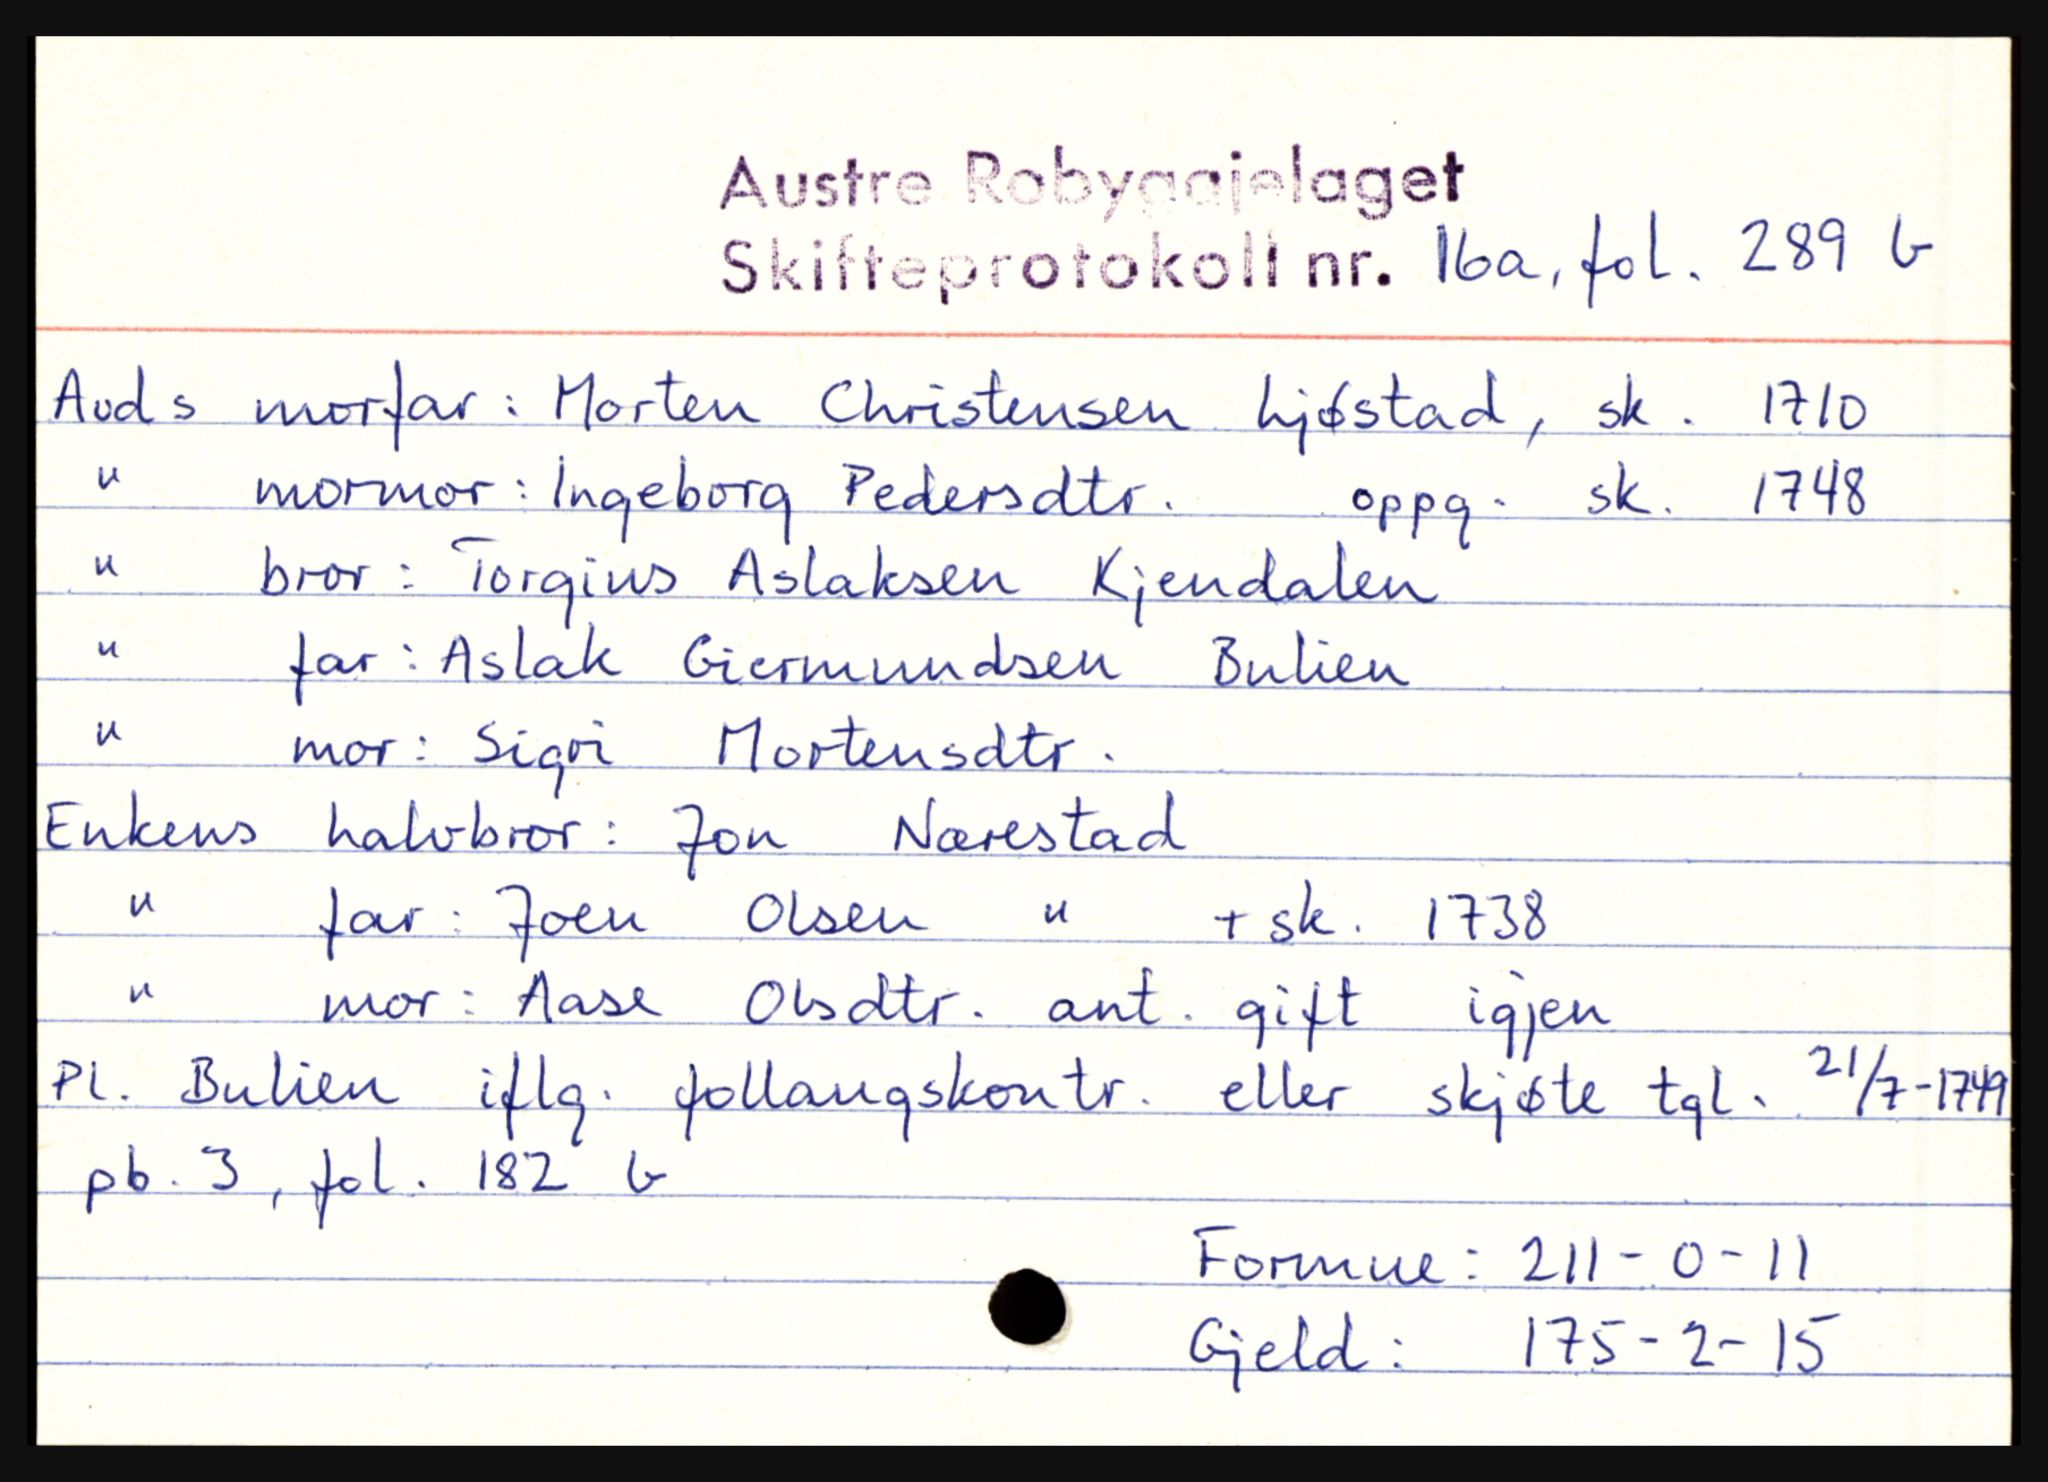 Austre Robyggjelaget
Skifteprotokoll nr. 16a, fol. 289 b
Avds morfar: Morten Christensen hjøstad, sk. 1710
" mormor: Ingeborg Pedersdtr. oppg. sk. 1748
" bror: Torgius Aslaksen Kjendalen
" far: Aslak Giermundsen Bulien
" mor: Sigri Mortensdtr.
Enkens halvbror: Jon Nærestad
" far: Joen Olsen " + sk. 1738
" mor: Aase Olsdtr. ant. gift igjen
Pl. Bulien iflg. follaugskontr. eller skjøte tgl. 21/7-1749
pb. 3, fol. 182 b
Formue: 211-0-11
Gjeld: 175-2-15